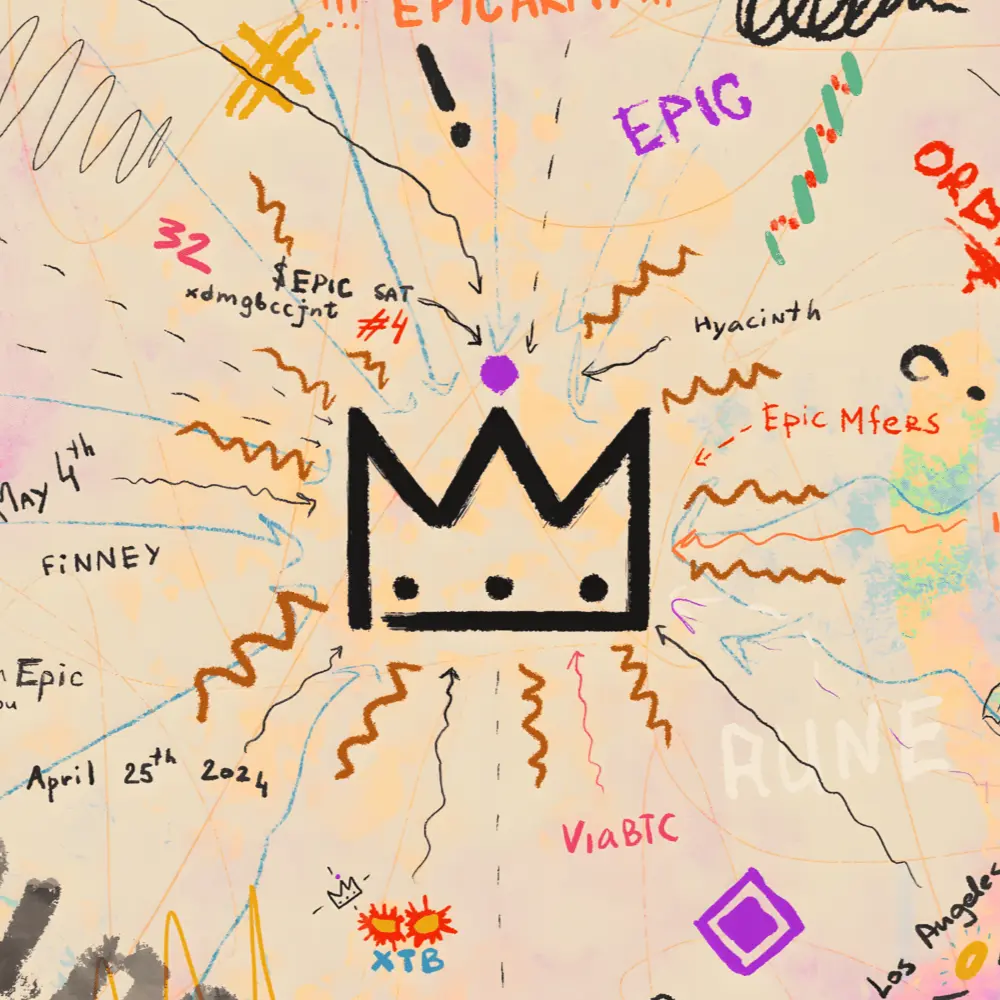 !!! EPICARMY !!!
EPIC
ORD
32
$EPIC SAT
xdmgbccjnt
#4
Hyacinth
Epic Mfers
MAY 4th
FiNNEY
Epic
ou
April 25th 2024
RUNE
ViaBTC
XTB
Los Angeles